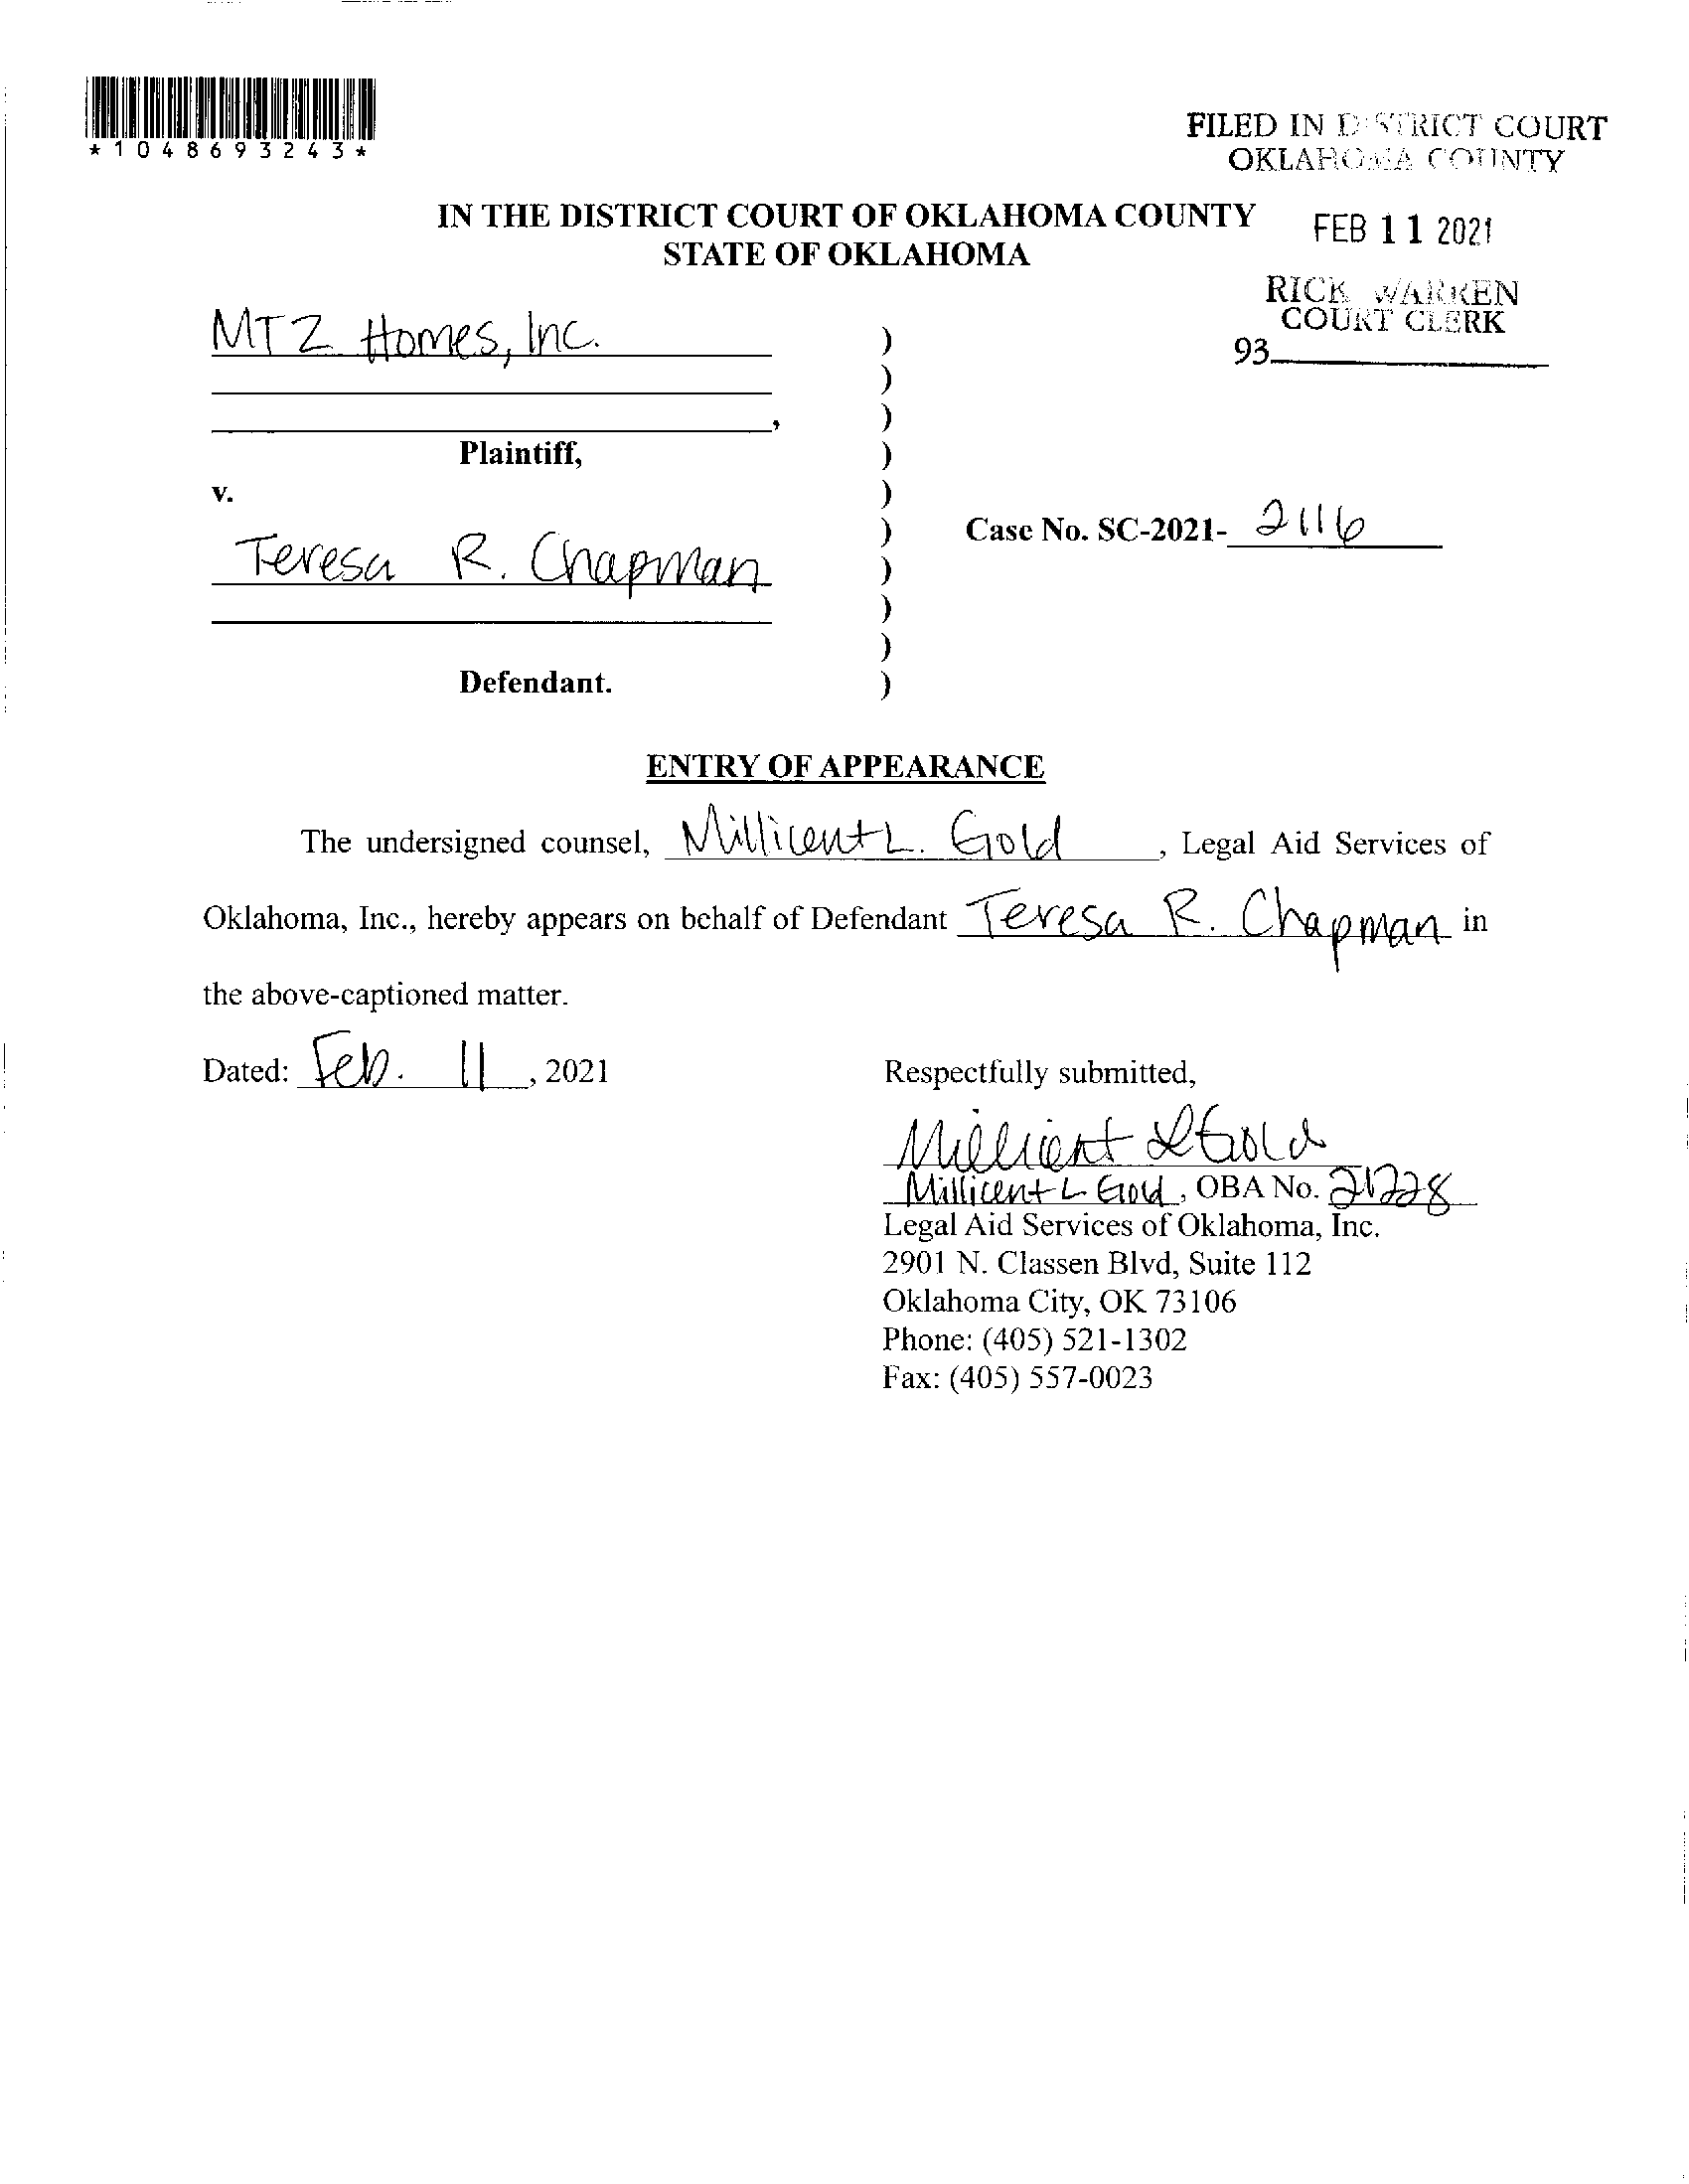 *1048693243*
FILED IN DISTRICT COURT
OKLAHOMA COUNTY
IN THE DISTRICT COURT OF OKLAHOMA COUNTY
STATE OF OKLAHOMA
FEB 11 2021
RICK WARREN
COURT CLERK
93
MTZ Homes, Inc. )
)
, )
Plaintiff, )
v. )
) Case No. SC-2021- 2116
Teresa R. Chapman )
)
)
Defendant. )
ENTRY OF APPEARANCE
The undersigned counsel, Millicent L. Gold, Legal Aid Services of
Oklahoma, Inc., hereby appears on behalf of Defendant Teresa R. Chapman in
the above-captioned matter.
Dated: Feb. 11, 2021
Respectfully submitted,
Millicent L Gold
Millicent L Gold, OBA No. 21228
Legal Aid Services of Oklahoma, Inc.
2901 N. Classen Blvd, Suite 112
Oklahoma City, OK 73106
Phone: (405) 521-1302
Fax: (405) 557-0023